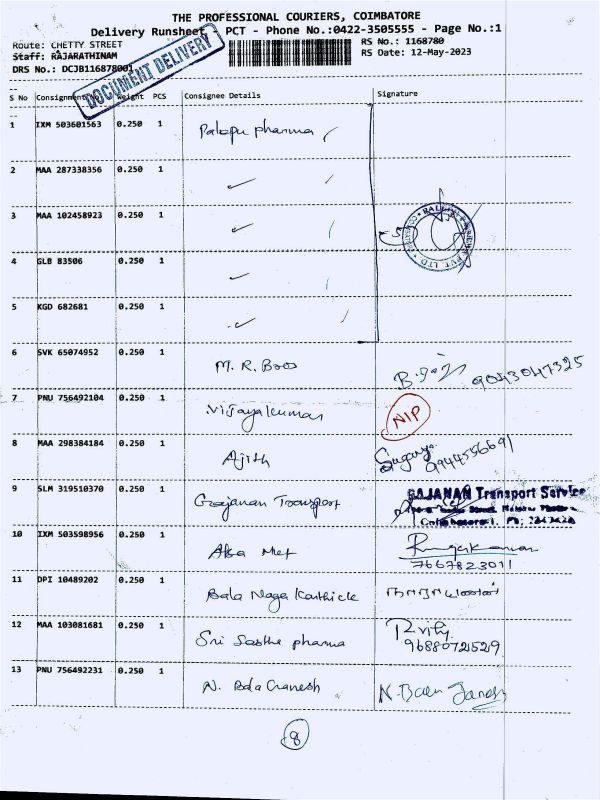 THE PROFESSIONAL COURIERS, COIMBATORE
Delivery Runsheet PCT - Phone No.:0422-3505555 - Page No.:1
Route: CHETTY STREET RS No.: 1168780
Staff: RAJARATHINAM RS Date: 12-May-2023
DRS No.: DCJB116878001
DOCUMENT DELIVERY
S No Consignment Weight PCS Consignee Details Signature
1 IXM 503601563 0.250 1 pharma
2 MAA 287338356 0.250 1
3 MAA 102458923 0.250 1
4 GLB 83506 0.250 1
5 KGD 682681 0.250 1
6 SVK 65074952 0.250 1 M. R. Boos 9043047325
7 PNU 756492104 0.250 1 Vijayakumar NIP
8 MAA 298384184 0.250 1 Ajith 9944556691
9 SLM 319510370 0.250 1 Gajanan Transport GAJANAN Transport Service
10 IXM 503598956 0.250 1 7667823011
11 DPI 10489202 0.250 1 Bala Naga Karthick நாராயணன்
12 MAA 103081681 0.250 1 Sri Sasthe pharma 9688072529
13 PNU 756492231 0.250 1 N. Bala Ganesh
8